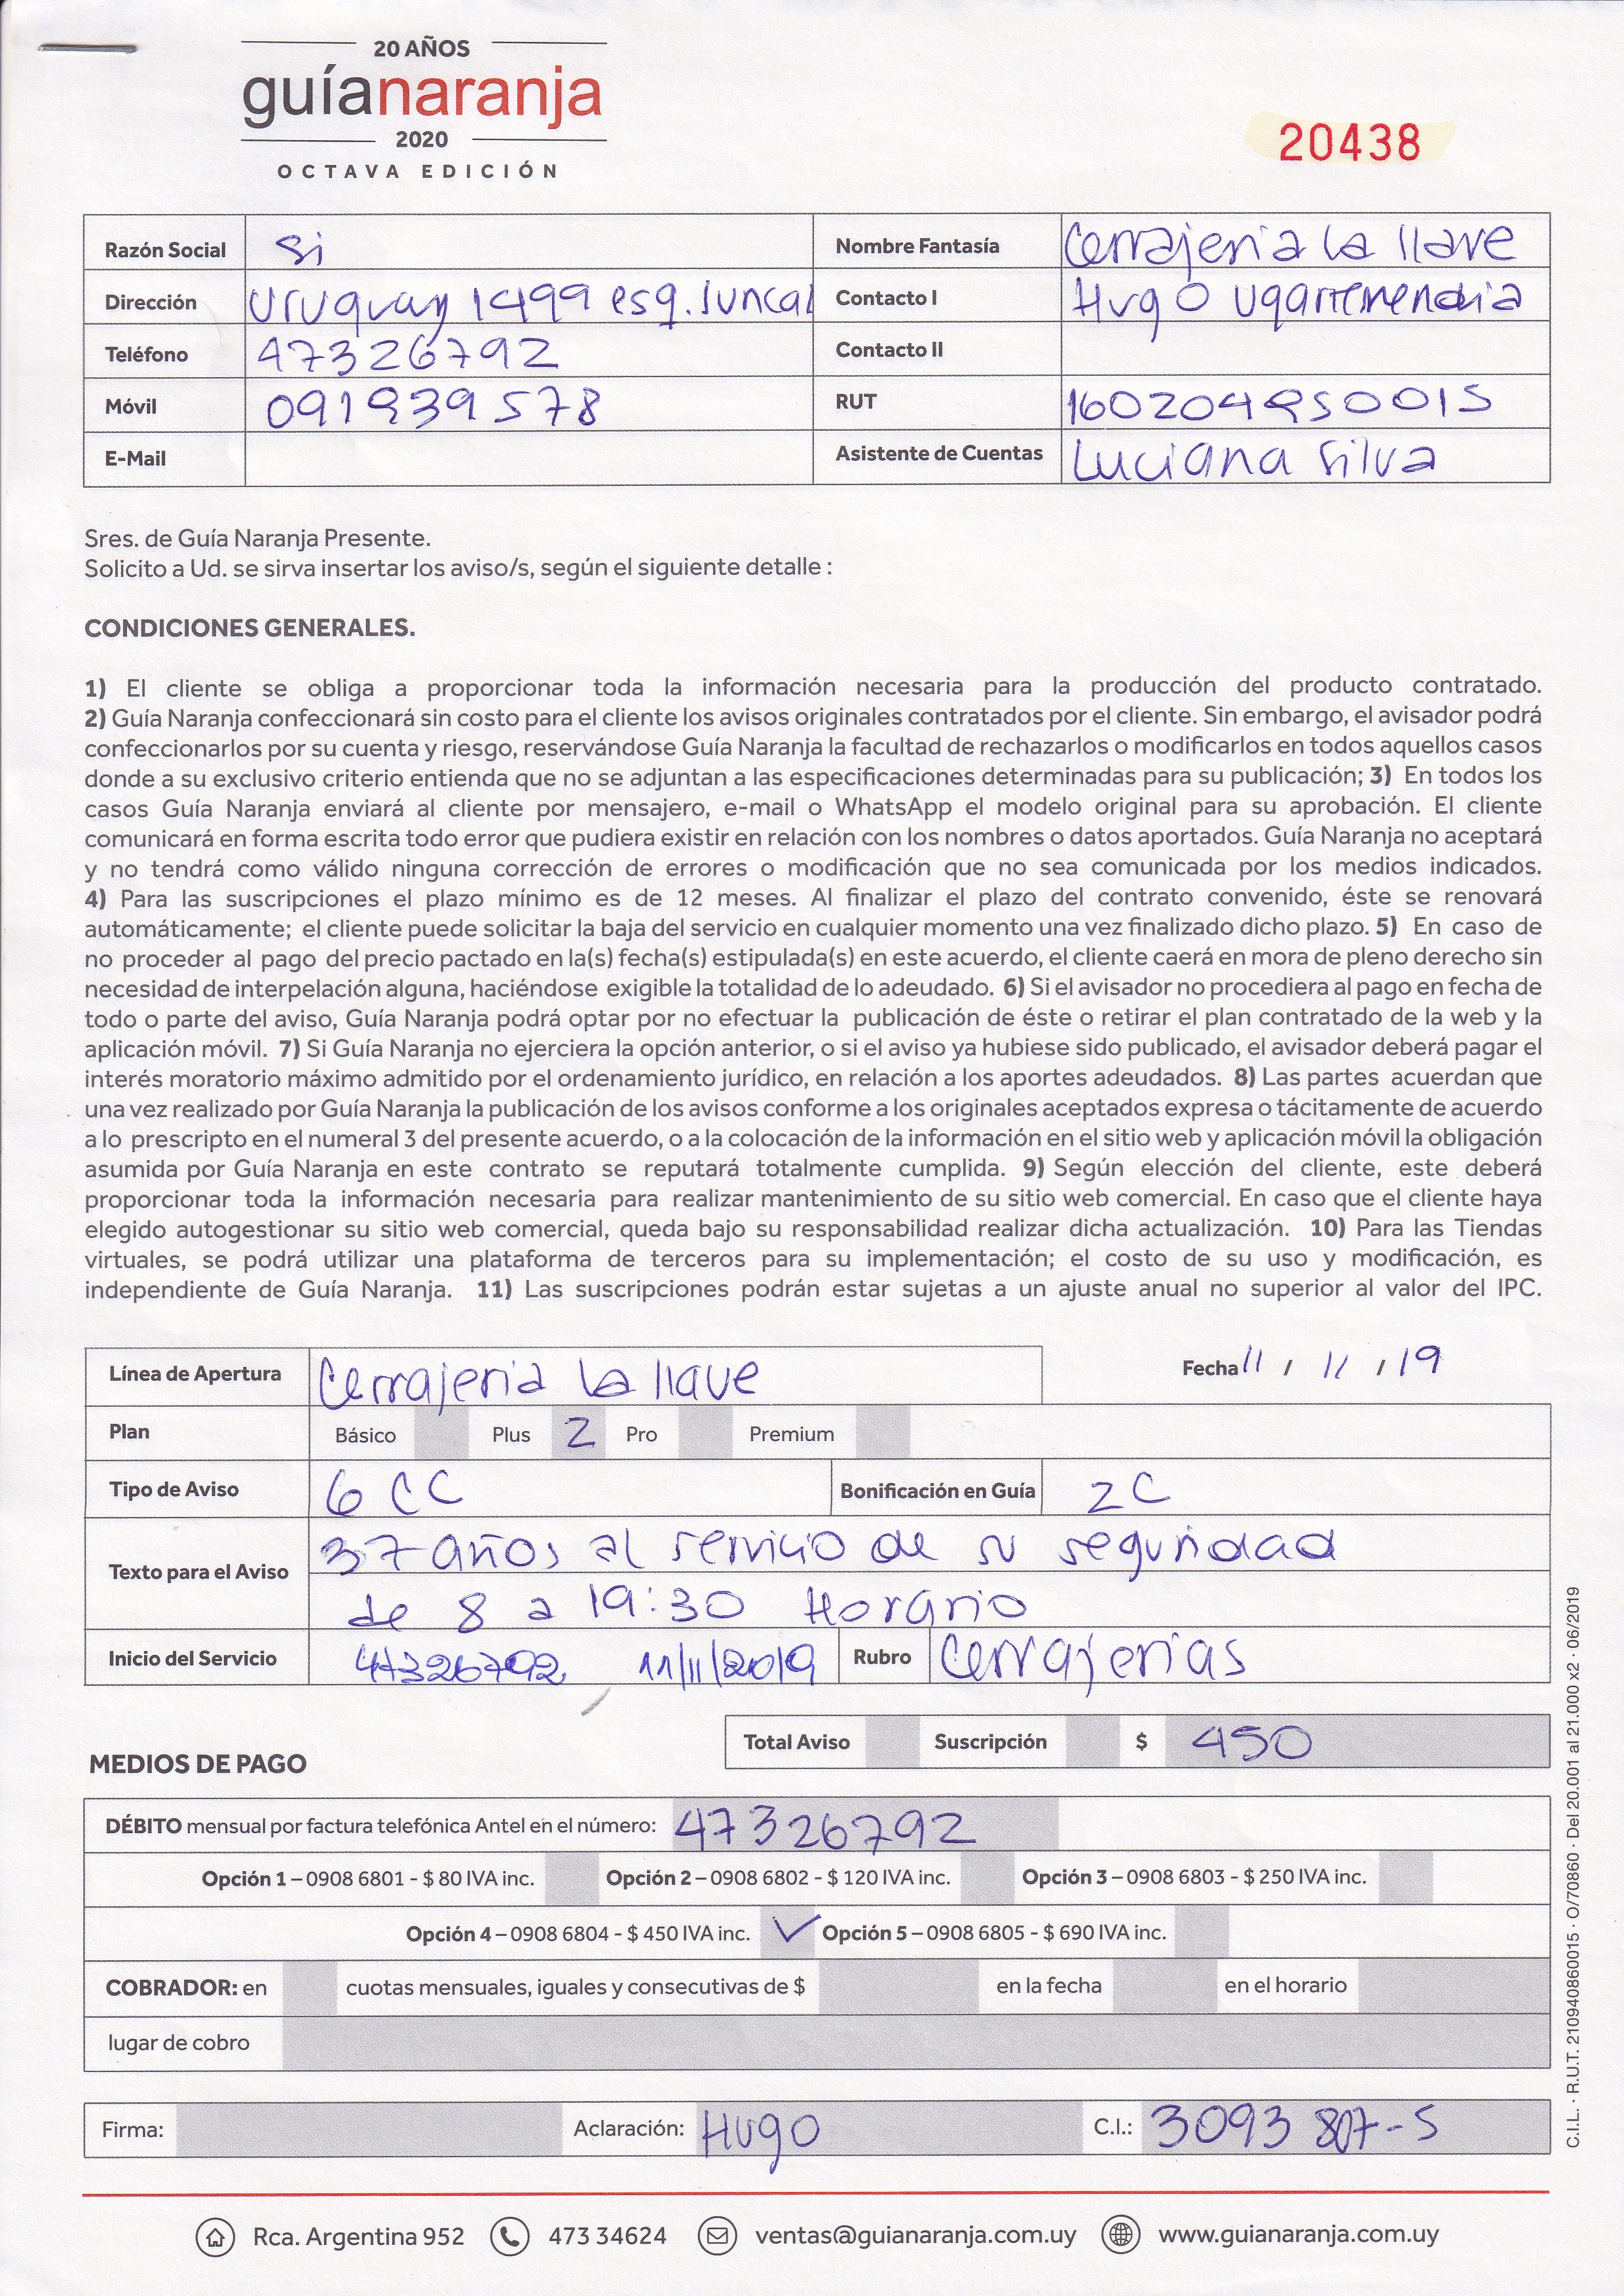 20 AÑOS
guíanaranja
2020
OCTAVA EDICIÓN
20438
Razón Social Si Nombre Fantasía Cerrajeria La llave
Dirección Uruguay 1499 esq. Juncal Contacto I Hugo Ugartemendia
Teléfono 47326792 Contacto II
Móvil 091939578 RUT 160204950015
E-Mail Asistente de Cuentas Luciana Silva
Sres. de Guía Naranja Presente.
Solicito a Ud. se sirva insertar los aviso/s, según el siguiente detalle :
CONDICIONES GENERALES.
1) El cliente se obliga a proporcionar toda la información necesaria para la producción del producto contratado.
2) Guía Naranja confeccionará sin costo para el cliente los avisos originales contratados por el cliente. Sin embargo, el avisador podrá
confeccionarlos por su cuenta y riesgo, reservándose Guía Naranja la facultad de rechazarlos o modificarlos en todos aquellos casos
donde a su exclusivo criterio entienda que no se adjuntan a las especificaciones determinadas para su publicación; 3) En todos los
casos Guía Naranja enviará al cliente por mensajero, e-mail o WhatsApp el modelo original para su aprobación. El cliente
comunicará en forma escrita todo error que pudiera existir en relación con los nombres o datos aportados. Guía Naranja no aceptará
y no tendrá como válido ninguna corrección de errores o modificación que no sea comunicada por los medios indicados.
4) Para las suscripciones el plazo mínimo es de 12 meses. Al finalizar el plazo del contrato convenido, éste se renovará
automáticamente; el cliente puede solicitar la baja del servicio en cualquier momento una vez finalizado dicho plazo. 5) En caso de
no proceder al pago del precio pactado en la(s) fecha(s) estipulada(s) en este acuerdo, el cliente caerá en mora de pleno derecho sin
necesidad de interpelación alguna, haciéndose exigible la totalidad de lo adeudado. 6) Si el avisador no procediera al pago en fecha de
todo o parte del aviso, Guía Naranja podrá optar por no efectuar la publicación de éste o retirar el plan contratado de la web y la
aplicación móvil. 7) Si Guía Naranja no ejerciera la opción anterior, o si el aviso ya hubiese sido publicado, el avisador deberá pagar el
interés moratorio máximo admitido por el ordenamiento jurídico, en relación a los aportes adeudados. 8) Las partes acuerdan que
una vez realizado por Guía Naranja la publicación de los avisos conforme a los originales aceptados expresa o tácitamente de acuerdo
a lo prescripto en el numeral 3 del presente acuerdo, o a la colocación de la información en el sitio web y aplicación móvil la obligación
asumida por Guía Naranja en este contrato se reputará totalmente cumplida. 9) Según elección del cliente, este deberá
proporcionar toda la información necesaria para realizar mantenimiento de su sitio web comercial. En caso que el cliente haya
elegido autogestionar su sitio web comercial, queda bajo su responsabilidad realizar dicha actualización. 10) Para las Tiendas
virtuales, se podrá utilizar una plataforma de terceros para su implementación; el costo de su uso y modificación, es
independiente de Guía Naranja. 11) Las suscripciones podrán estar sujetas a un ajuste anual no superior al valor del IPC.
Línea de Apertura Cerrajeria La llave Fecha 11 / 11 / 19
Plan Básico Plus 2 Pro Premium
Tipo de Aviso 6 CC Bonificación en Guía 2C
Texto para el Aviso 37 años al servicio de su seguridad
de 8 a 19:30 Horario
Inicio del Servicio 47326792 11/11/2019 Rubro Cerrajerias
Total Aviso Suscripción $ 450
MEDIOS DE PAGO
DÉBITO mensual por factura telefónica Antel en el número: 47326792
Opción 1 – 0908 6801 - $ 80 IVA inc. Opción 2 – 0908 6802 - $ 120 IVA inc. Opción 3 – 0908 6803 - $ 250 IVA inc.
Opción 4 – 0908 6804 - $ 450 IVA inc. ✓ Opción 5 – 0908 6805 - $ 690 IVA inc.
COBRADOR: en cuotas mensuales, iguales y consecutivas de $ en la fecha en el horario
lugar de cobro
Firma: Aclaración: Hugo C.I.: 3093 807-5
Rca. Argentina 952 473 34624 ventas@guianaranja.com.uy www.guianaranja.com.uy
C.I.L. · R.U.T. 210940860015 · O/70860 · Del 20.001 al 21.000 x2 · 06/2019